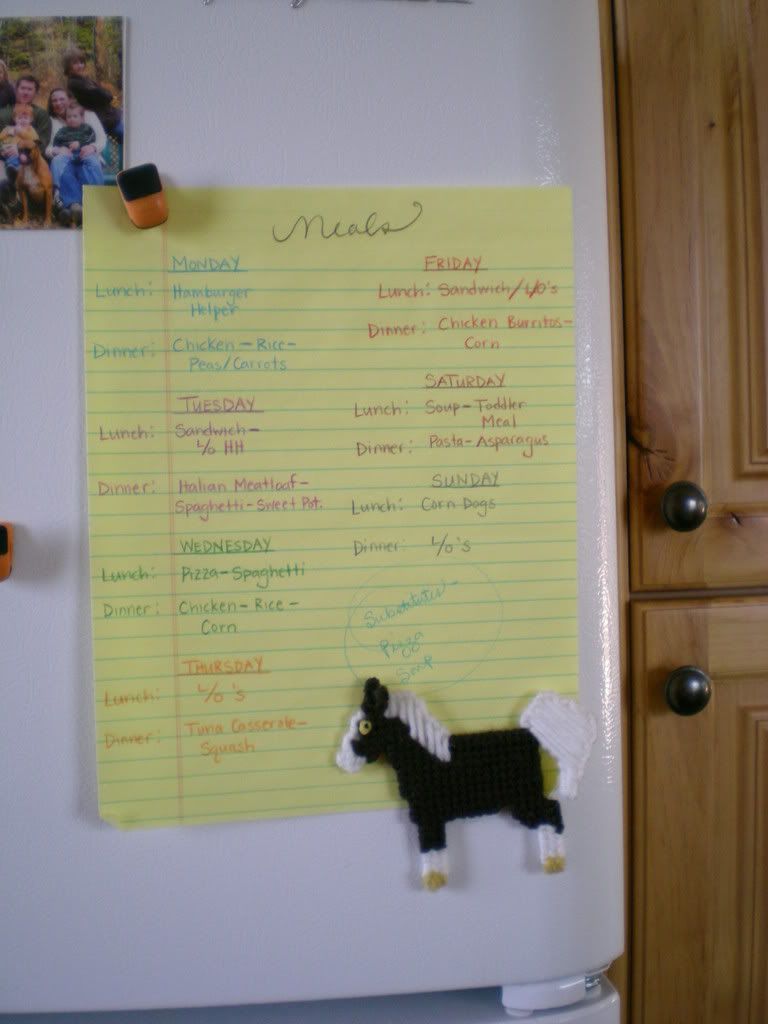 Meals
MONDAY
Lunch: Hamburger
Helper
Dinner: Chicken - Rice -
Peas/Carrots
TUESDAY
Lunch: Sandwich -
L/O HH
Dinner: Italian Meatloaf -
Spaghetti - Sweet Pot.
WEDNESDAY
Lunch: Pizza - Spaghetti
Dinner: Chicken - Rice -
Corn
THURSDAY
Lunch: L/O's
Dinner: Tuna Casserole -
Squash
FRIDAY
Lunch: Sandwich/L/O's
Dinner: Chicken Burritos -
Corn
SATURDAY
Lunch: Soup - Toddler
Meal
Dinner: Pasta - Asparagus
SUNDAY
Lunch: Corn Dogs
Dinner: L/O's
Substitutes -
Pizza
Soup